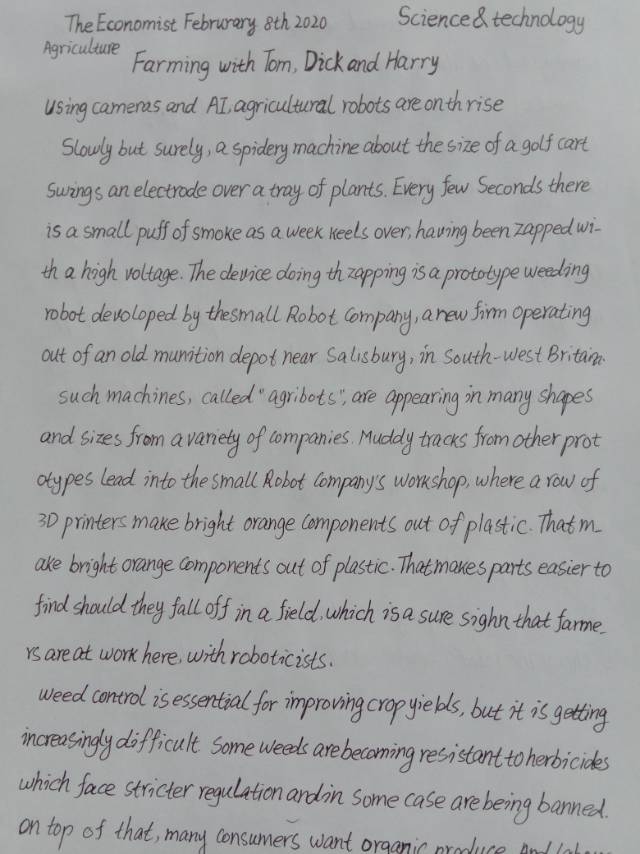 The Economist Februrary 8th 2020 Science & technology
Agriculture
Farming with Tom, Dick and Harry
Using cameras and AI, agricultural robots are on th rise
Slowly but surely, a spidery machine about the size of a golf cart
Swings an electrode over a tray of plants. Every few Seconds there
is a small puff of smoke as a week keels over, having been zapped wi-
th a high voltage. The device doing th zapping is a prototype weeding
robot devoloped by the small Robot Company, a new firm operating
out of an old munition depot near Salisbury, in South-west Britain.
such machines, called "agribots", are appearing in many shapes
and sizes from a variety of companies. Muddy tracks from other prot
otypes lead into the small Robot Company's workshop, where a row of
3D printers make bright orange components out of plastic. That m-
ake bright orange components out of plastic. That makes parts easier to
find should they fall off in a field, which is a sure sighn that farme-
rs are at work here, with roboticists.
weed control is essential for improving crop yields, but it is getting
increasingly difficult. Some weeds are becoming resistant to herbicides
which face stricter regulation and in some case are being banned.
on top of that, many consumers want organic produce. And